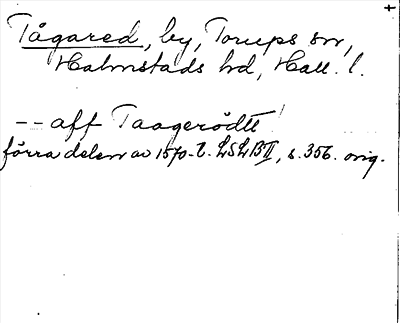 Tågared, by, Torups sn,
Halmstads hd, Hall. l.
-- aff Taagerödtt
förra delen av 1570-t. LSLBII, s. 356. orig.